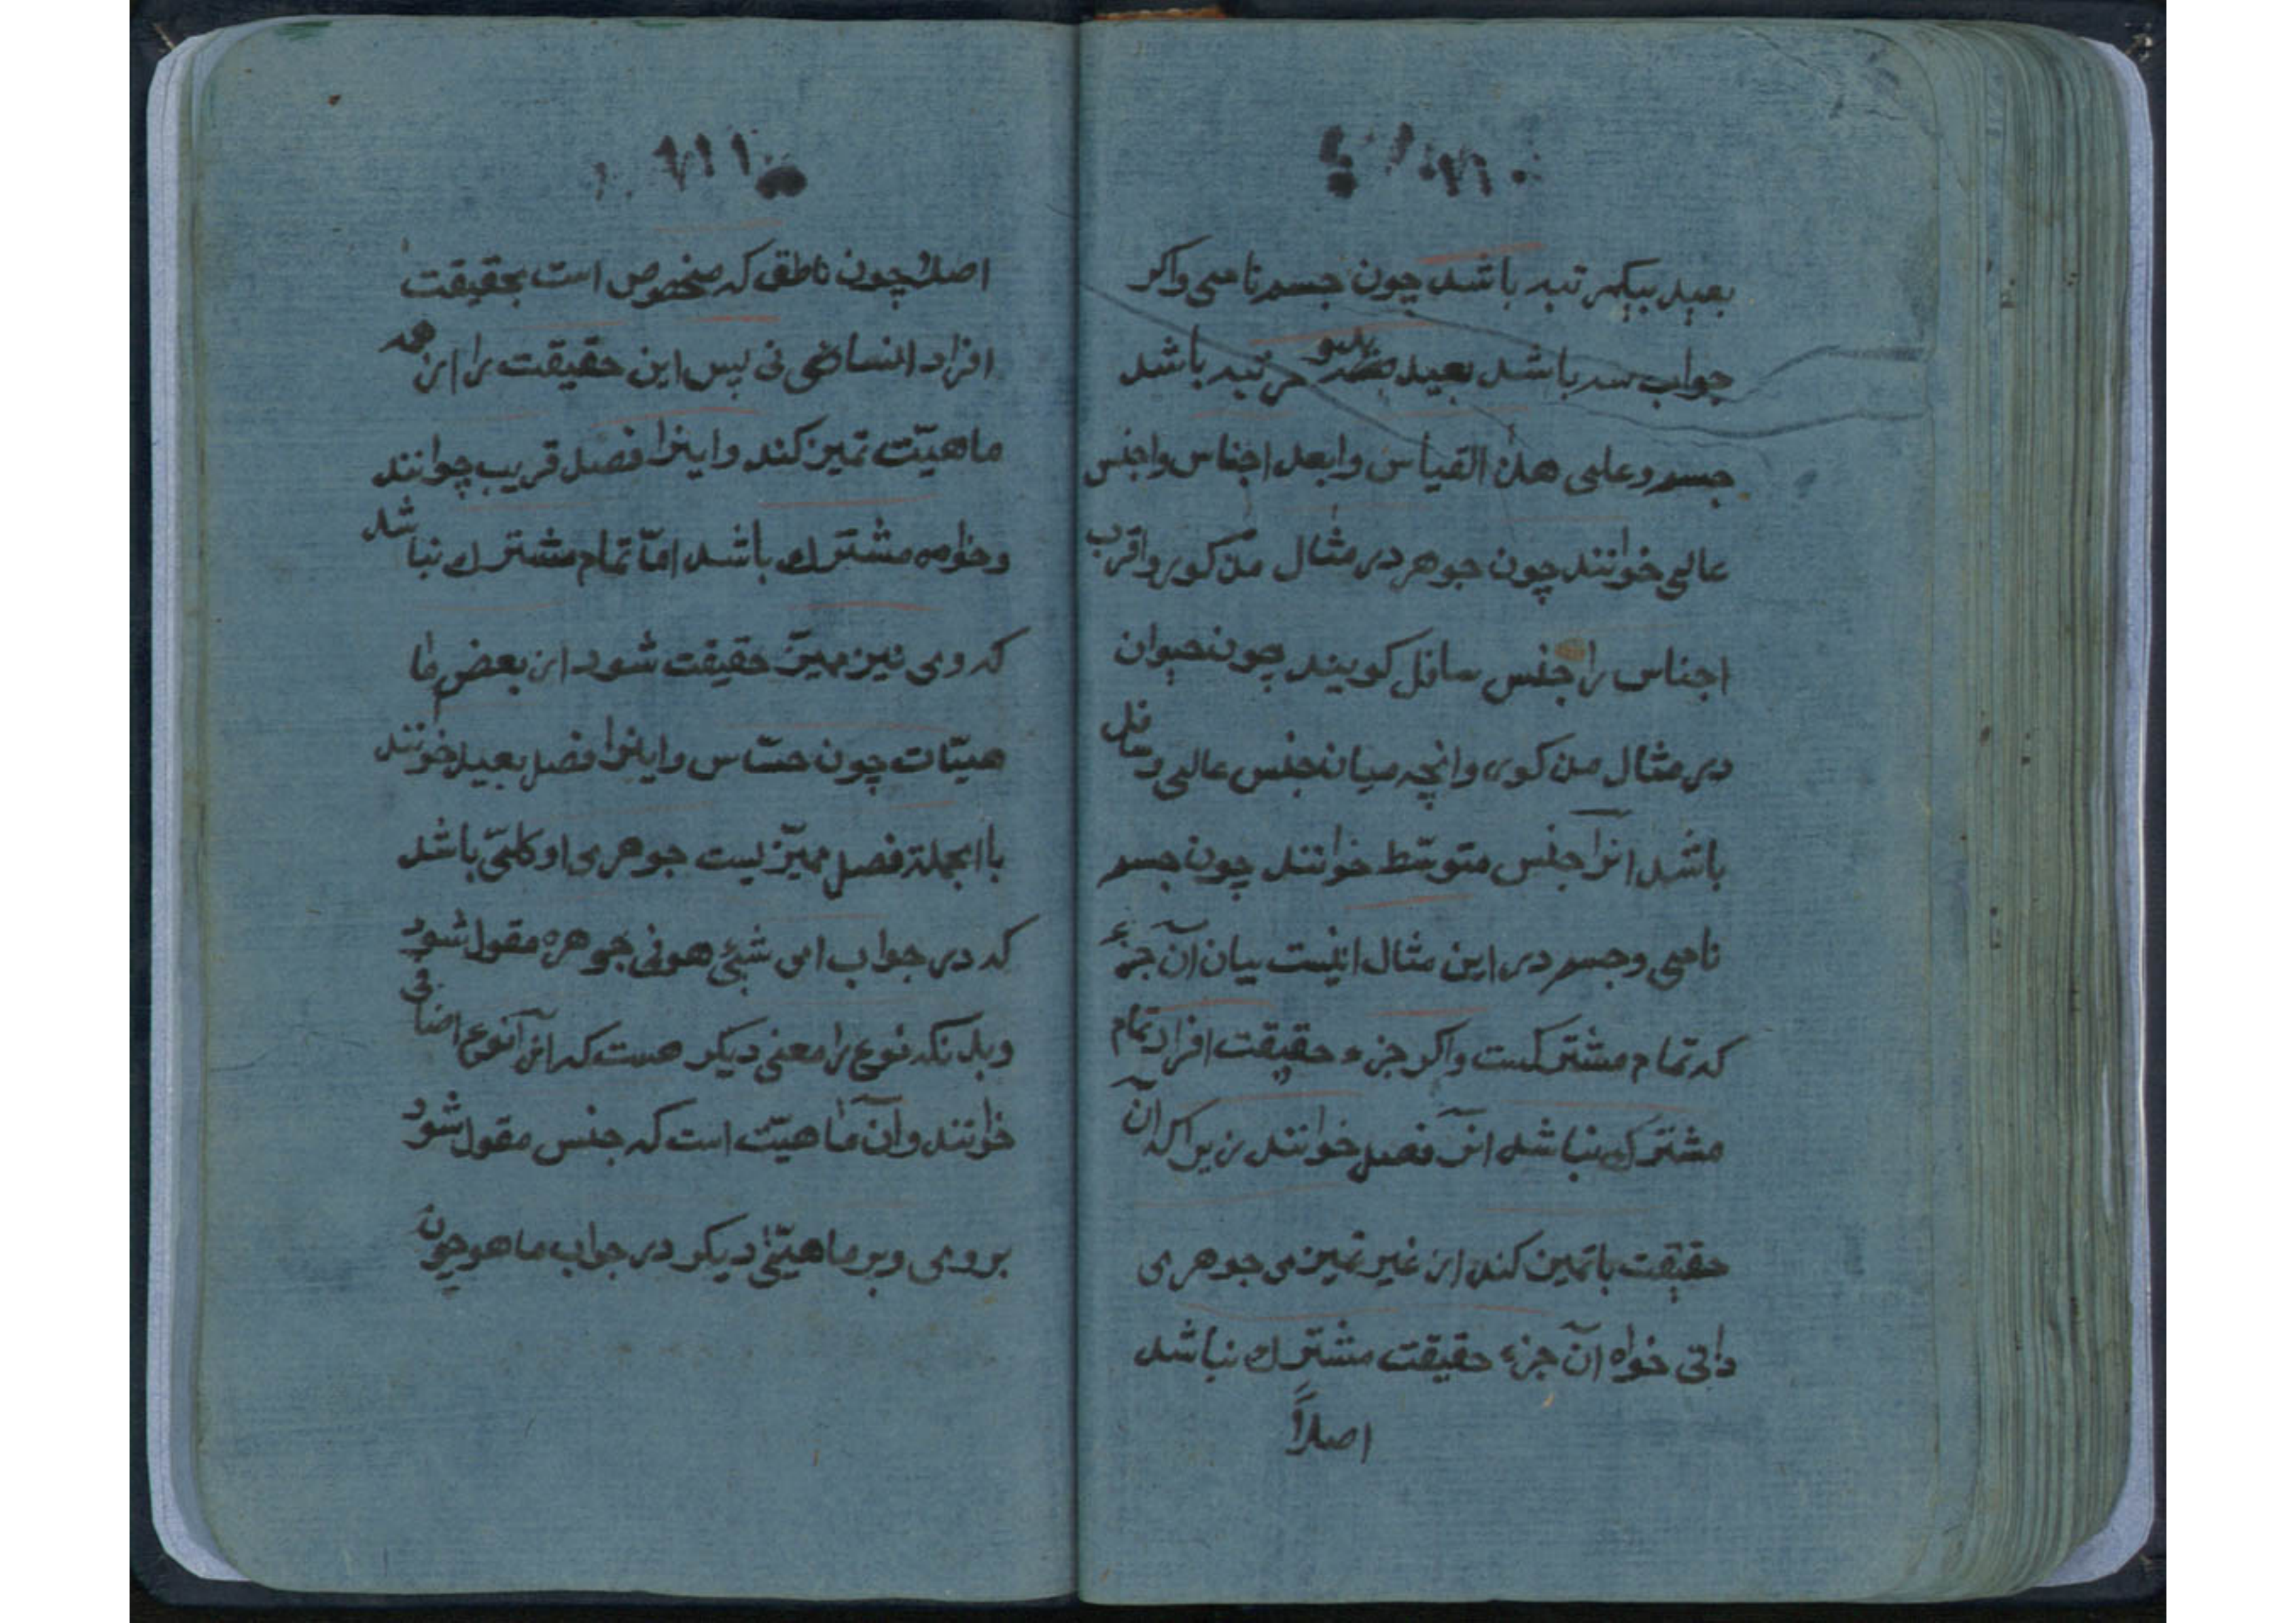 بعید بیکمرتبه باشد چون جسم نامی واکر
جواب سه باشد بعید بدو مرتبه باشد
جسم وعلی هذا القیاس وابعد اجناس واجنس
عالی خوانند چون جوهر در مثال مذکور واقرب
اجناس را جنس سافل کویند چون حیوان
در مثال مذکور وانچه میان جنس عالی وسافل
باشد انرا جنس متوسّط خوانند چون جسم
نامی وجسم در این مثال اینست بیان آن جزء
که تمام مشترکست واکر جزء حقیقت افراد تمام
مشترک نباشد انرا فصل خوانند زیرا که آن
حقیقت با تمیز کند از غیر تمیزی جوهری
ذاتی خواه آن جزء حقیقت مشترک نباشد
اصلاً
اصلاً چون ناطق که مخصوص است بحقیقت
افراد انسانی پس این حقیقت را از همه
ماهیّت تمیز کند واینرا فصل قریب خوانند
وخواه مشترک باشد امّا تمام مشترک نباشد
که وی نیز ممیّز حقیقت شود از بعض ما
هیّات چون حسّاس واینرا فصل بعید خوانند
باالجملة فصل ممیّزیست جوهری او کلّی باشد
که در جواب ای شیئ هو فی جوهره مقول شود
وبدانکه نوع را معنی دیکر هست که آنرا نوع اضافی
خوانند وآن ماهیّت است که جنس مقول شود
بروی وبر ماهیّتی دیکر در جواب ما هو چون